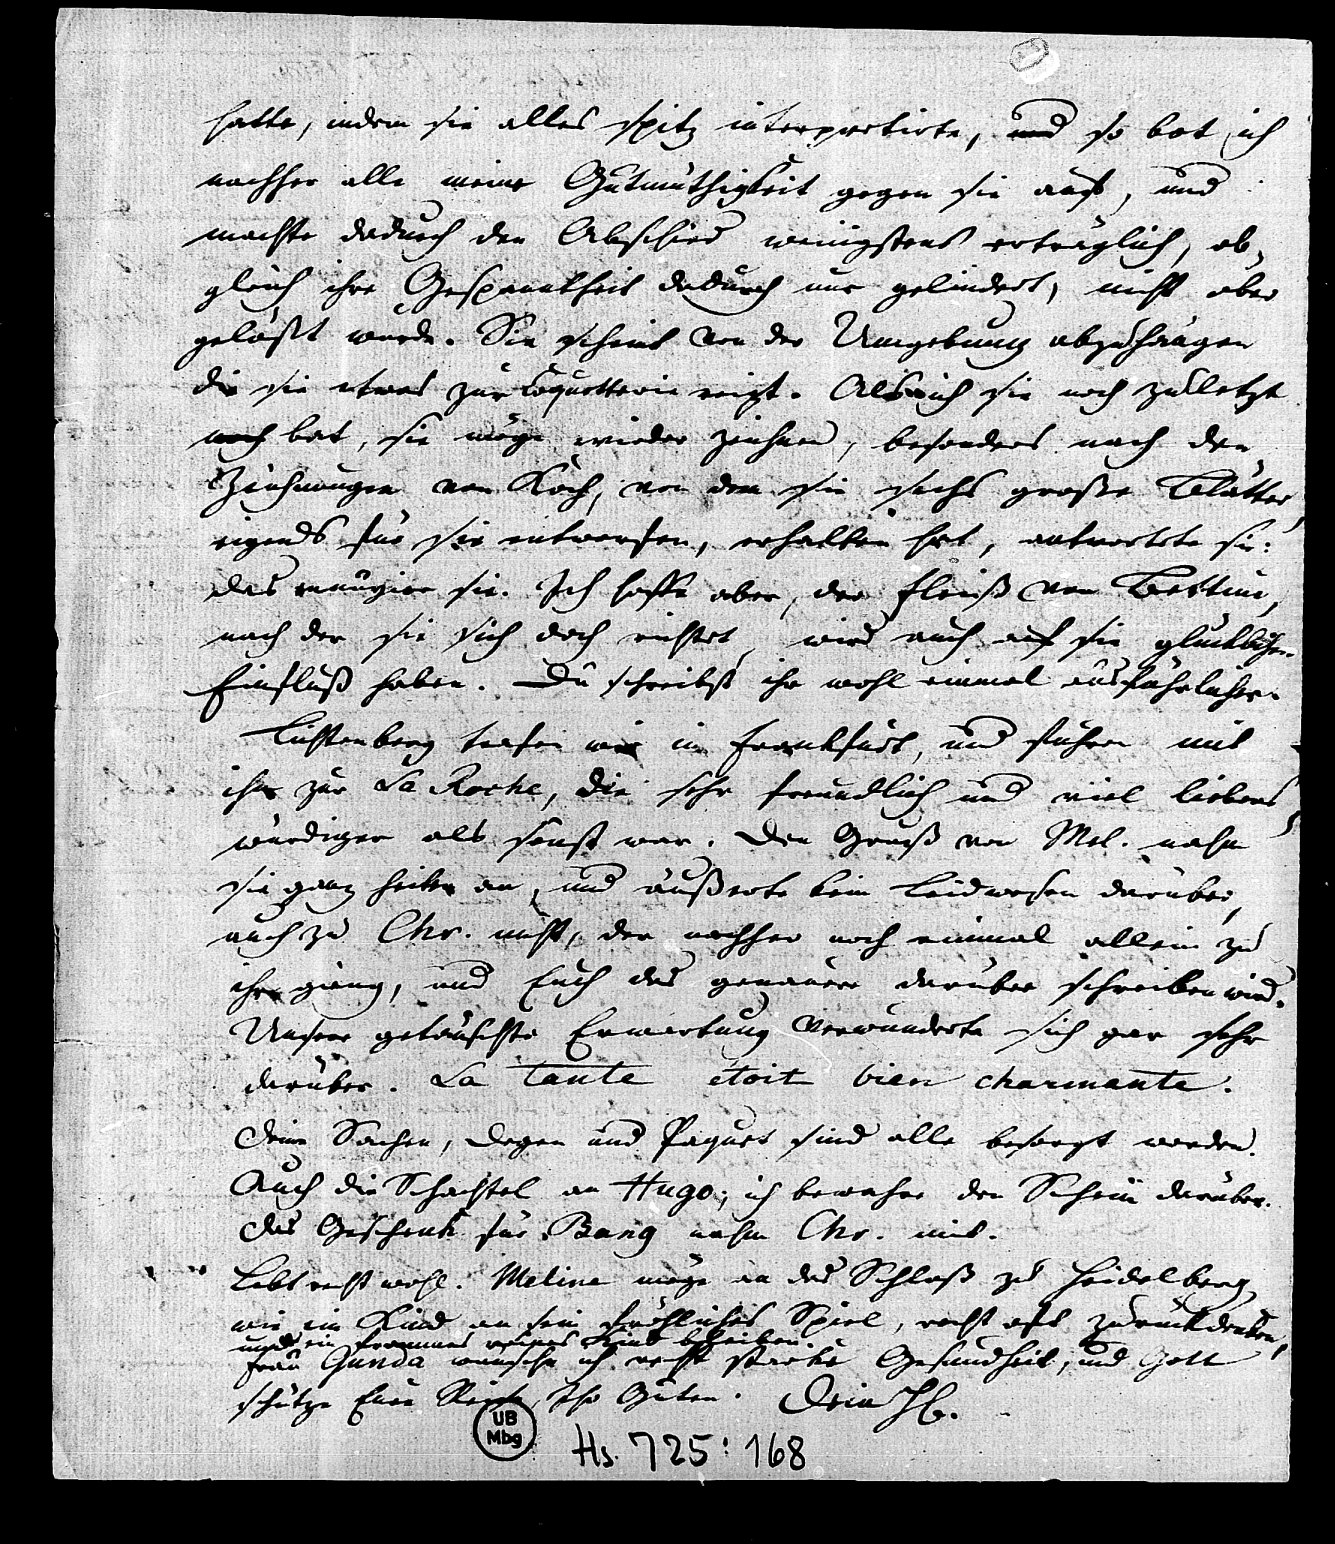 hatte, indem sie alles spitz interpretirte, und so bot ich
nachher alle meine Gutmüthigkeit gegen sie auf, und
machte dadurch den Abschied wenigstens erträglich, ob-
gleich ihre Gespanntheit dadurch nur gelindert, nicht aber
gelößt wurde. Sie scheint von der Umgebung abzuhängen
die sie etwas zur Coquetterie reizt. Als ich sie noch zuletzt
noch bat, sie möge wieder zeichnen, besonders nach den
Zeichnungen von Koch, von dem sie sechs große Blätter,
eigends für sie entworfen, erhalten hat, antwortete sie:
das ennuyire sie. Ich hoffe aber, der Fleiß von Bettine,
nach der sie sich doch richtet, wird auch auf sie glücklichen
Einfluß haben. Du schreibst ihr wohl einmal ausführlicher.
Lichtenberg trafen wir in Frankfurt, und fuhren mit
ihr zur La Roche, die sehr freundlich und viel liebens
würdiger als sonst war. Den Gruß von Mel. nahm
sie ganz heiter an, und äußerte kein Leidwesen darüber,
auch zu Chr. nicht, der nachher noch einmal allein zu
ihr gieng, und Euch das genauere darüber schreiben wird.
Unsere getäuschte Erwartung verwunderte sich gar sehr
darüber. La Tante étoit bien charmante.
Deine Sachen, Degen und Paquet sind alle besorgt worden.
Auch die Schachtel an Hugo; ich bewahre den Schein darüber.
Das Geschenk für Bang nahm Chr. mit.
Lebt recht wohl. Meline möge an das Schloß zu Heidelberg,
wie ein Kind an sein fröhliches Spiel, recht oft zurückdenken,
und ein frommes reines Kind bleiben.
Frau Gunda wünsche ich recht starke Gesundheit, und Gott
schütze Eure Reise, Ihr Guten. Dein
UB
Mbg
Hs. 725: 168